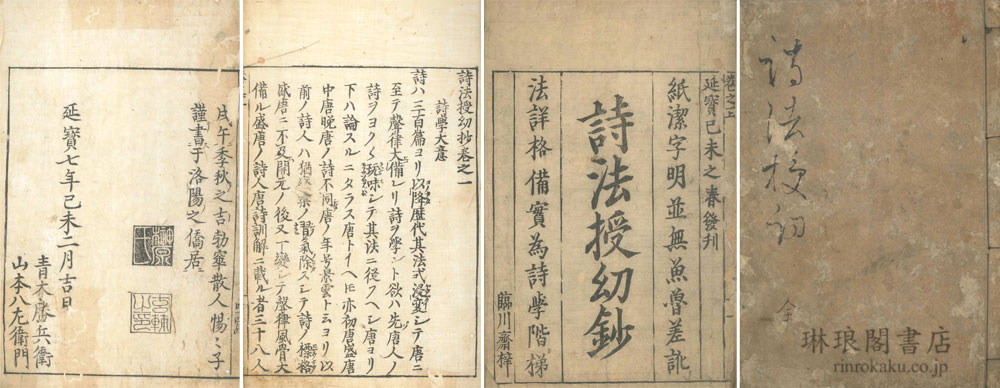 詩法授幼
全
琳琅閣書店
rinrokaku.co.jp
巻之上
延寶己未之春發刋
紙潔字明並無魚魯差訛
詩法授幼鈔
法詳格備實為詩學階梯
臨川齋梓
詩法授幼抄巻之一
詩学大意
詩ハ三百篇ヨリ以降歴代其法式浸変シテ唐ニ
至テ聲律大備レリ詩ヲ學ント欲ハ先唐人ノ
詩ヲヨク〱玩味シテ其法ニ從フヘシ唐ヨリ
下ハ論スルニタラス唐トイヘ𪜈亦初唐盛唐
中唐晩唐ノ詩不同唐ノ年号景雲ヨリ以
前ノ詩人ハ猶ノ習氣除スシテ詩ノ標格
盛唐ニ不及開元ノ後又一變シテ聲律風骨大
備ル盛唐ノ詩人唐詩訓解ニ載ル者三十八人
戊午季秋之吉勃窣散人惕〻子
謹書于洛陽之僑居
延寶七年己未二月吉日
青木勝兵衛
山本八左衛門